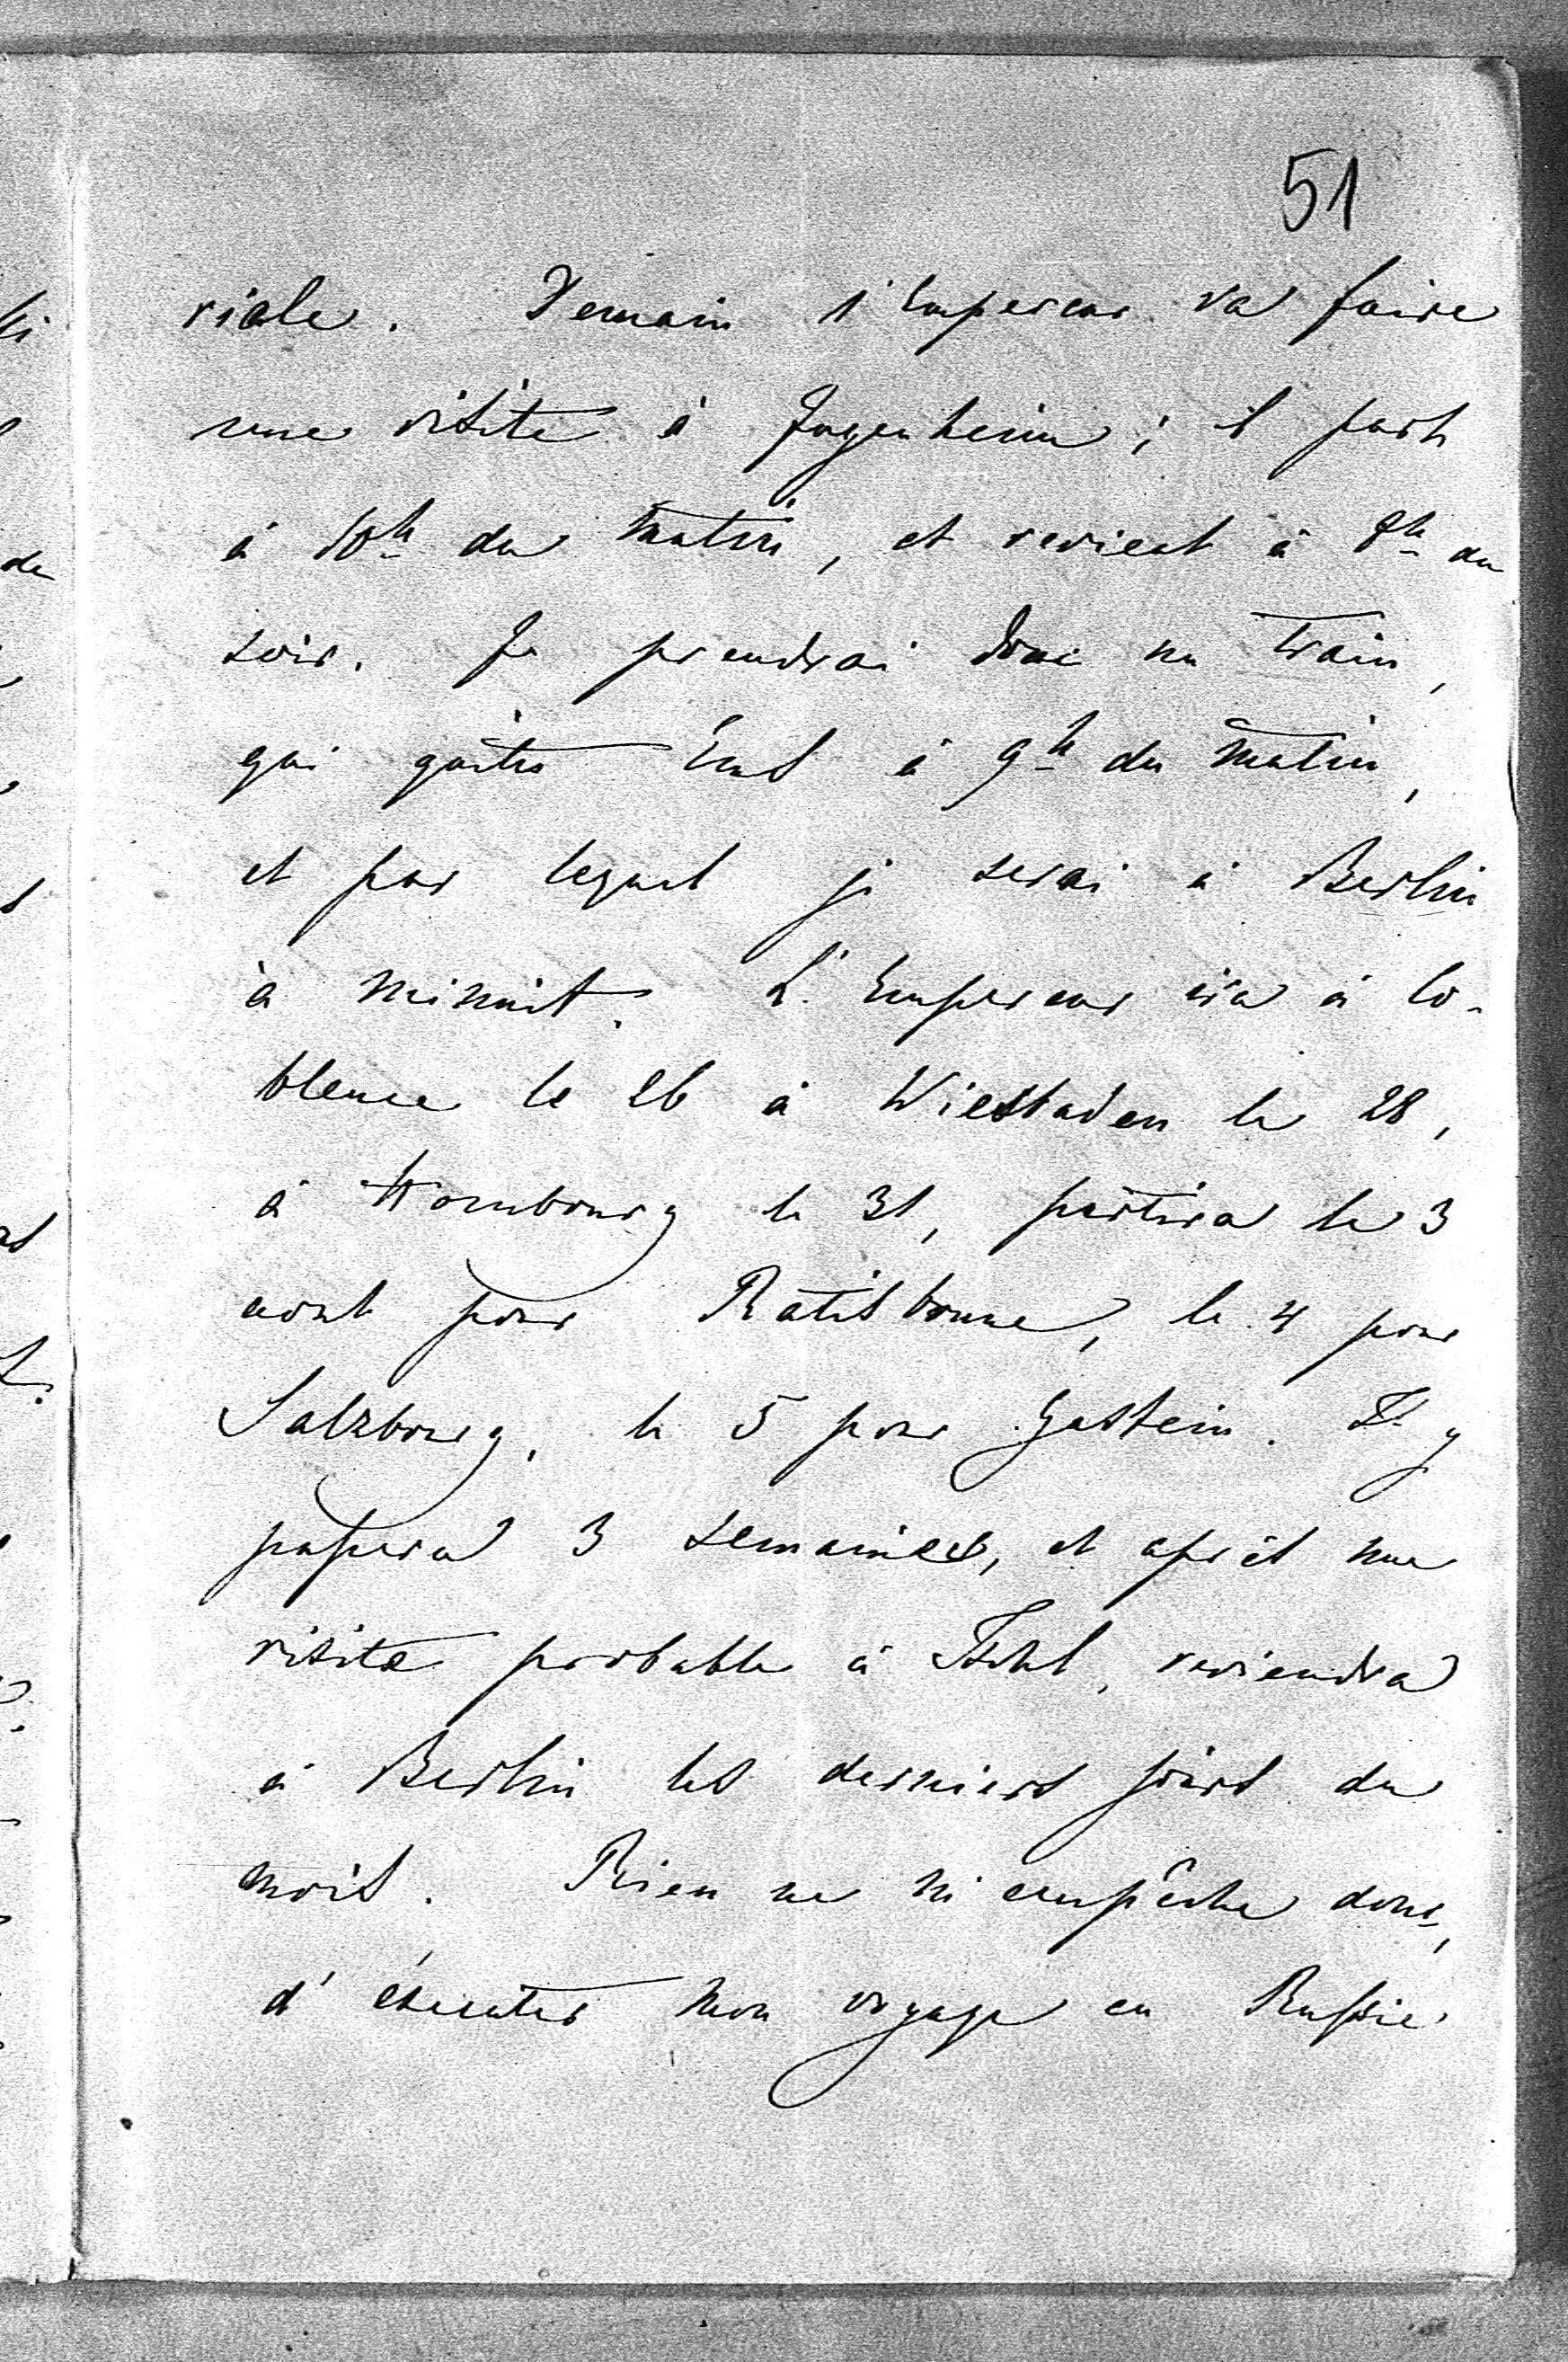 51
riale. Demain l'Empereur va faire
une visite à Jugenheim; il part
à 10h du matin, et revient à 8h du
soir. Je prendrai donc un train,
qui quitte Ems à 9h du matin,
et par lequel je serai à Berlin
à minuit. L'Empereur ira à Co-
blence le 26 à Wiesbaden le 28,
à Hombourg le 31, partira le 3
aout pour Ratisbonne, le 4 pour
Salzbourg, le 5 pour Gastein. Il y
passera 3 semaines, et après une
visite probable à Ischl, reviendra
à Berlin les derniers jours du
mois. Rien ne m'empêche donc,
d'éxecuter mon voyage en Russie